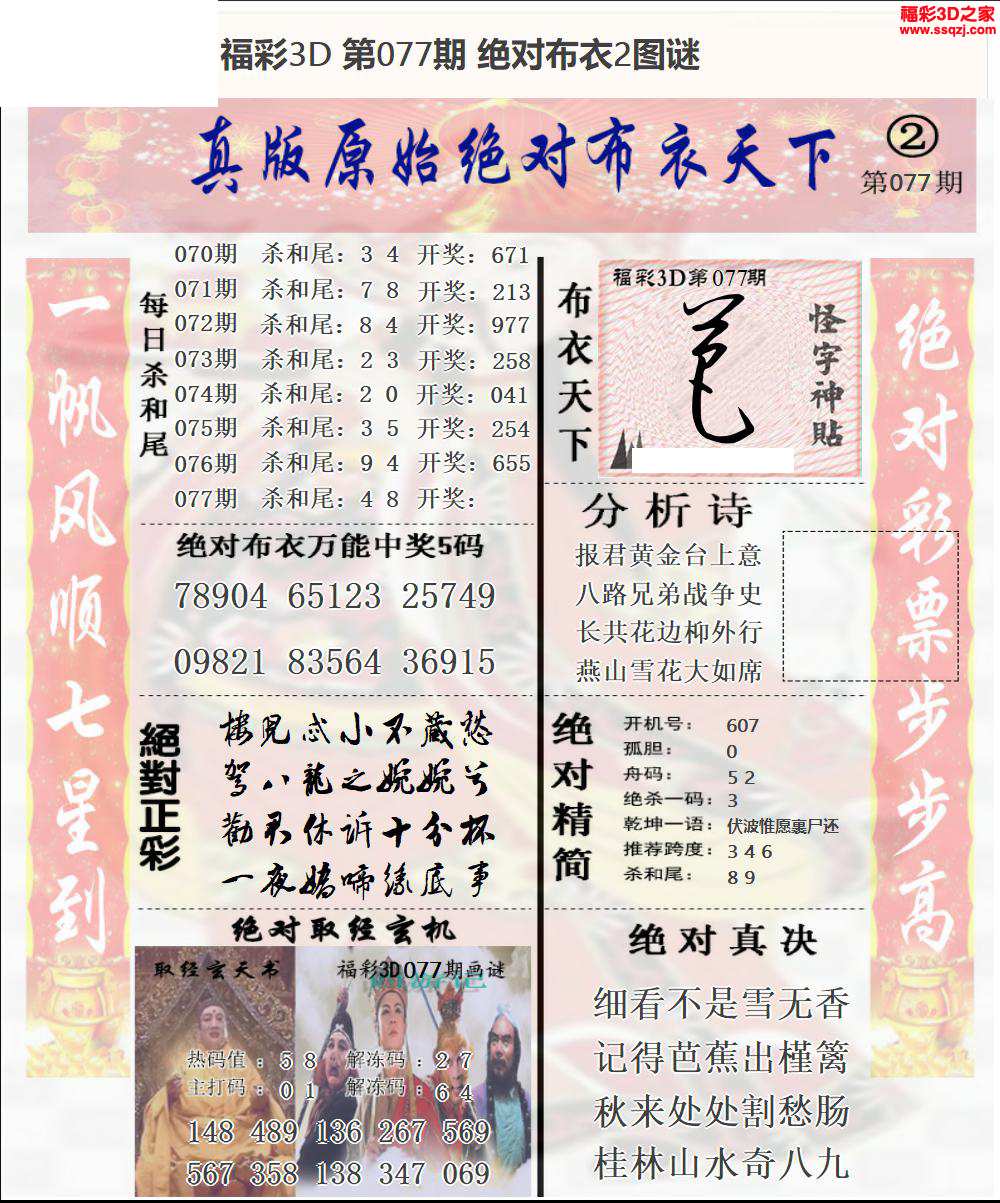 福彩3D之家
www.ssqzj.com
福彩3D 第077期 绝对布衣2图谜
真版原始绝对布衣天下
②
第077期
一帆风顺七星到
每日杀和尾
070期 杀和尾：3 4 开奖：671
071期 杀和尾：7 8 开奖：213
072期 杀和尾：8 4 开奖：977
073期 杀和尾：2 3 开奖：258
074期 杀和尾：2 0 开奖：041
075期 杀和尾：3 5 开奖：254
076期 杀和尾：9 4 开奖：655
077期 杀和尾：4 8 开奖：
绝对布衣万能中奖5码
78904 65123 25749
09821 83564 36915
絕對正彩
楼见忒小不藏愁
驾八龍之婉婉兮
勸君休訴十分杯
一夜嬌啼缘底事
绝对取经玄机
取经玄天书
福彩3D077期画谜
热码值：5 8 解冻码：2 7
主打码：0 1 解冻码：6 4
148 489 136 267 569
567 358 138 347 069
布衣天下
福彩3D第077期
怪字神貼
分析诗
报君黄金台上意
八路兄弟战争史
长共花边柳外行
燕山雪花大如席
绝对精简
开机号：607
孤胆：0
舟码：5 2
绝杀一码：3
乾坤一语：伏波惟愿裹尸还
推荐跨度：3 4 6
杀和尾：8 9
绝对真决
细看不是雪无香
记得芭蕉出槿篱
秋来处处割愁肠
桂林山水奇八九
绝对彩票步步高